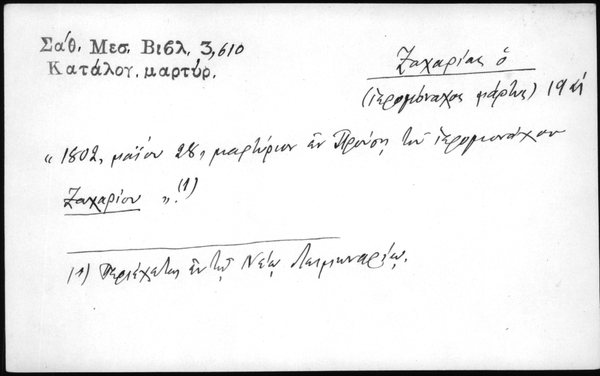 Σάθ. Μεσ. Βιβλ. 3,610
Κατάλογ. μαρτύρ.
Ζαχαρίας ὁ
(ἱερομόναχος μάρτυς) 19
"1802, μαΐου 28, μαρτύριον ἐν Προύσῃ τοῦ ἱερομονάχου
Ζαχαρίου". (1)
(1) Περιέχεται ἐν τῷ Νέῳ Λειμωναρίῳ.